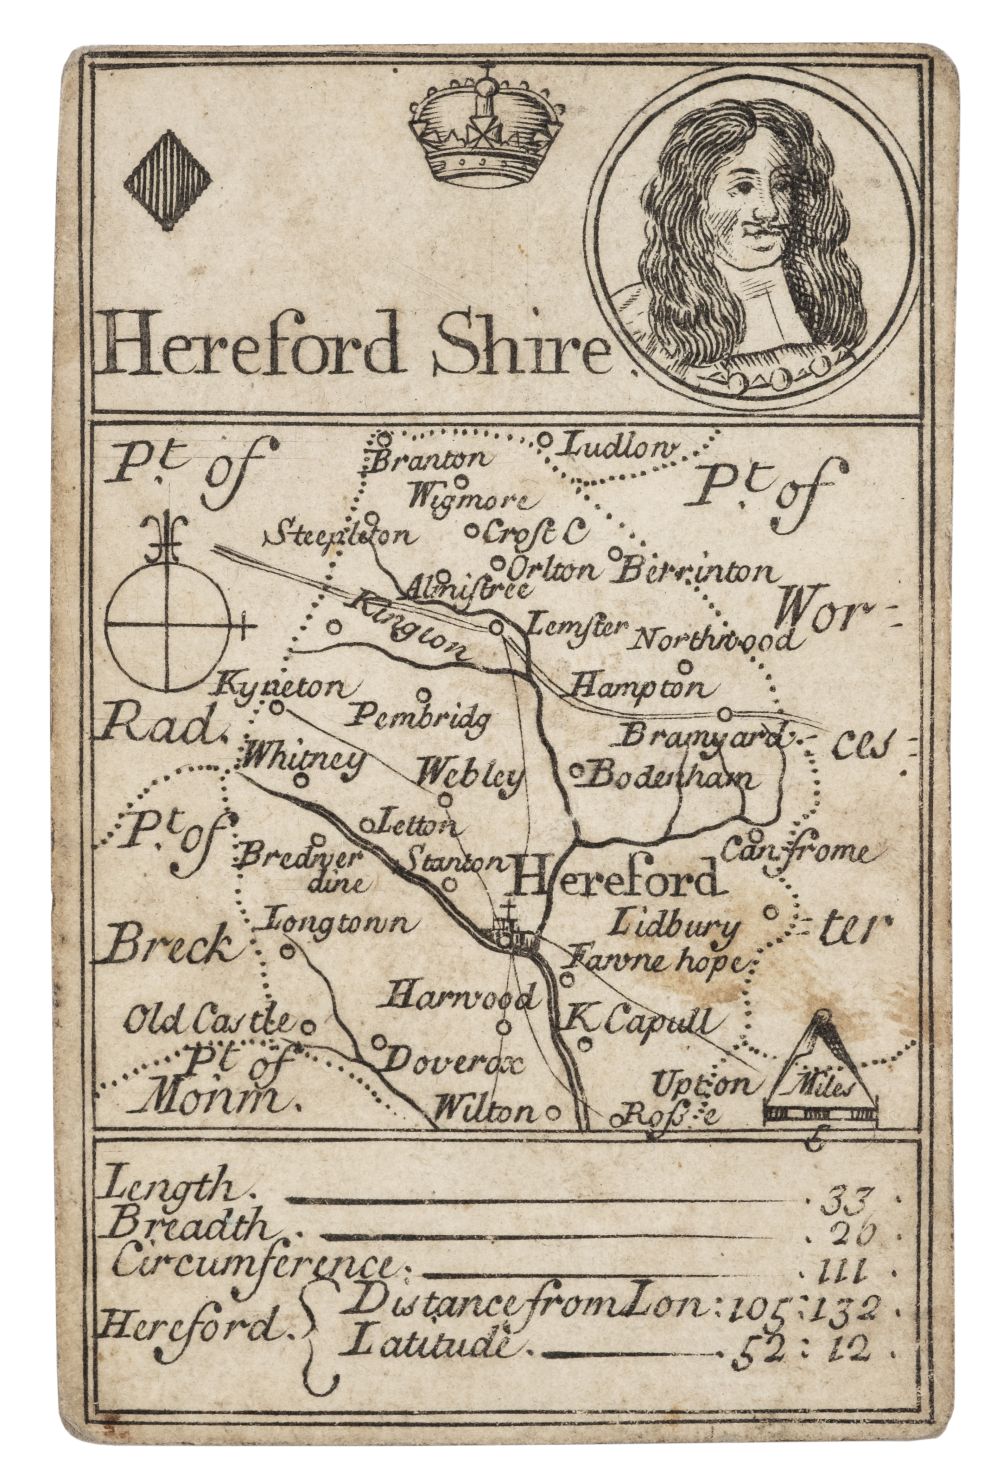 Hereford Shire.
Pt. of
Branton
Ludlow
Wigmore
Pt. of
Steepleton
Croſt C
Orlton
Berrinton
Almiſtree
Kington
Lemſter
Wor-
Northwood
Kyneton
Hampton
Pembridg
Rad.
Bramyard
ces
Whitney
Webley
Bodenham
Letton
Pt. of
Bredwer
dine
Stanton
Can frome
Hereford
Longtown
Lidbury
ter
Breck
Fawne hope
Harwood
Old Castle
K Capull
Pt of
Doverox
Monm.
Upton
Miles
Wilton
Roſse
6
Length. 33.
Breadth. 26.
Circumference: 111.
Hereford.
Distance from Lon: 105: 132.
Latitude. 52: 12.